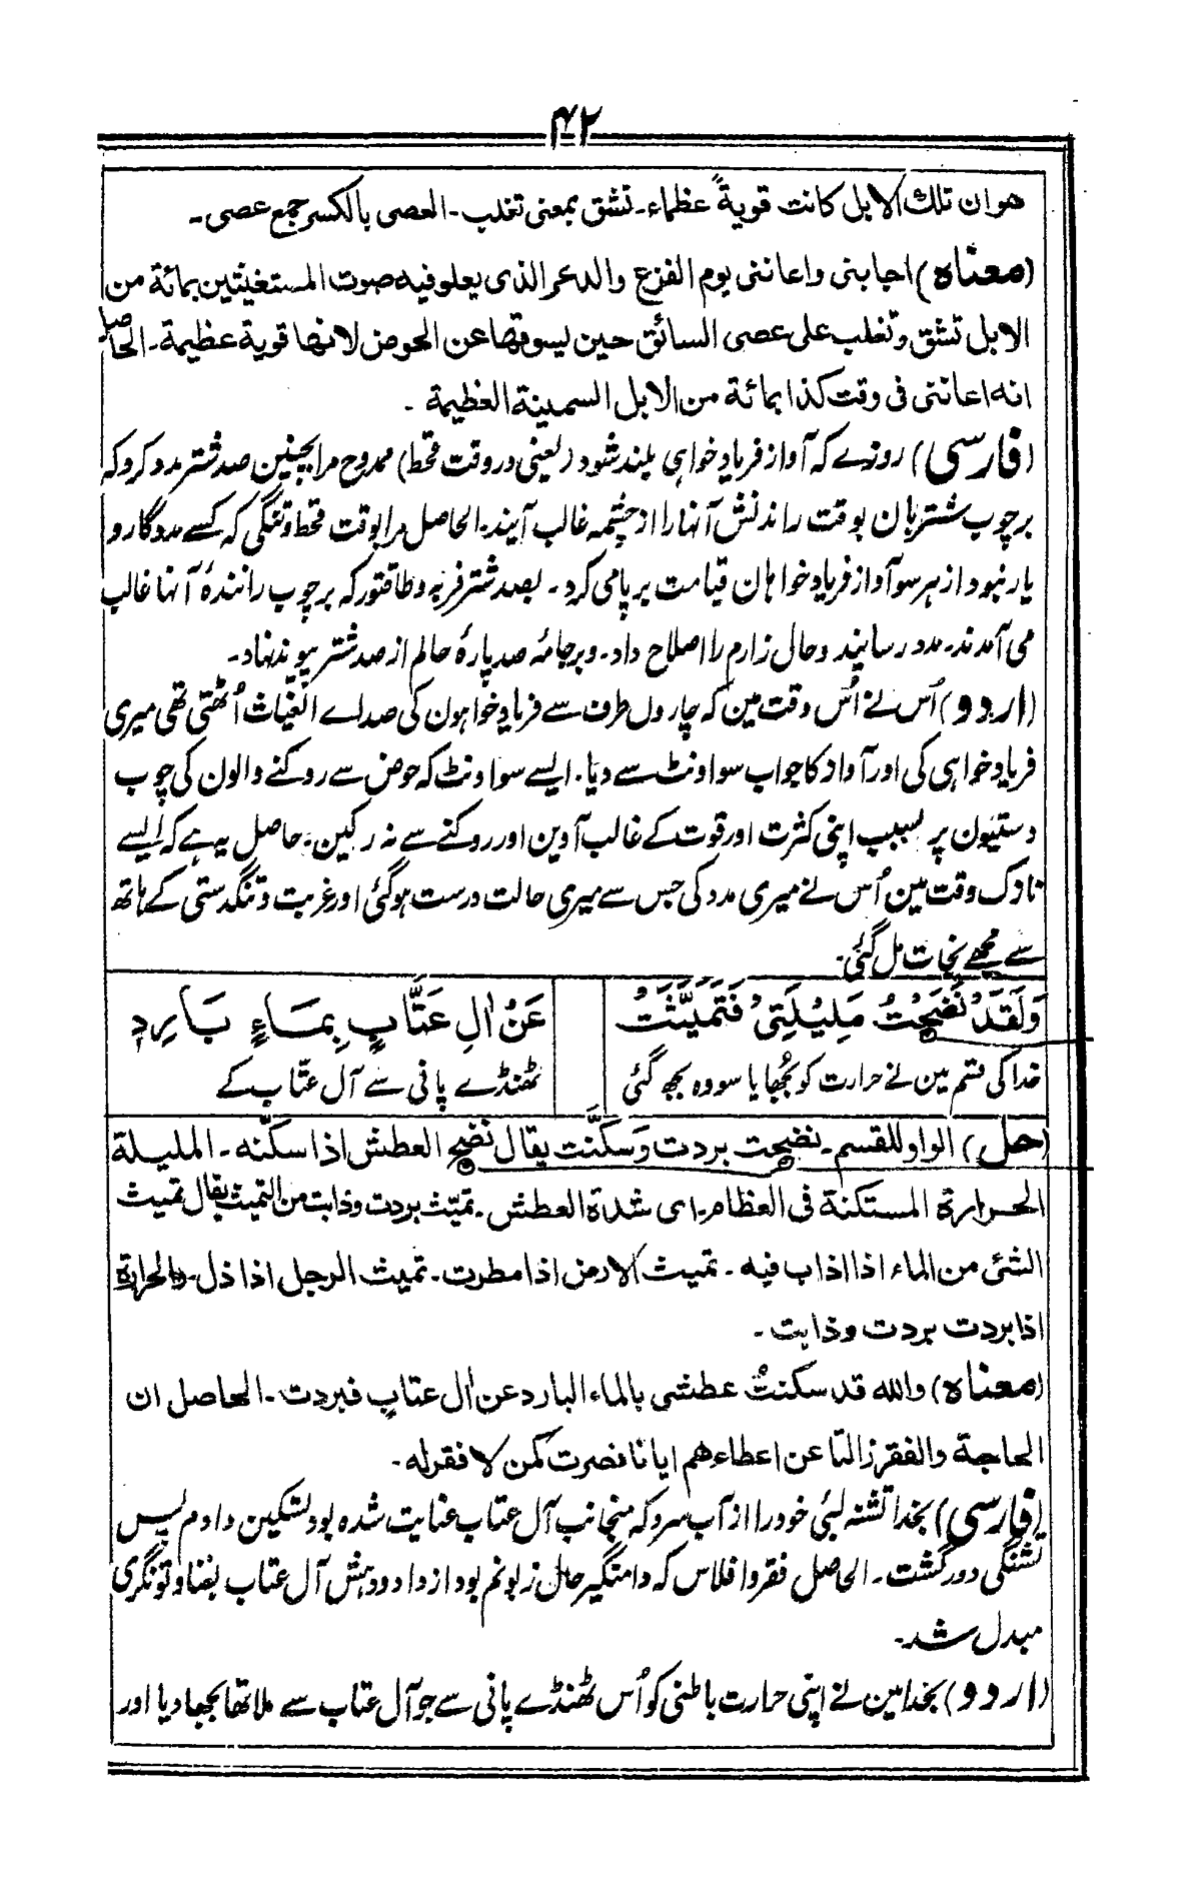 ۴۲
هو ان تلك الابل كانت قويةً عظماء۔ تشق بمعنى تغلب۔ العصى بالكسر جمع عصى۔
(معناه) اجابنى واعاننى يوم الفزع والدعر الذى يعلو فيه صوت المستغيثين بمائة من
الابل تشق وتغلب على عصى السائق حين يسوقها عن الحوض لانها قوية عظيمة۔ الحاصل
انه اعاننى فى وقت كذا بمائة من الابل السمينة العظيمة ۔
(فارسی) روزے کہ آواز فریاد خواہی بلند شود (یعنی در وقت قحط) ممدوح مرا بچنین صد شتر مدد کرد کہ
بر چوب شتربان بوقت راندنش آنہا را از چشمہ غالب آیند۔ الحاصل مرا بوقت قحط و تنگی کہ کسے مددگار و
یار نبود از ہر سو آواز فریاد خواہان قیامت برپا می کرد ۔ بصد شتر فربہ و طاقتور کہ بر چوب رانندۂ آنہا غالب
می آمدند۔ مدد رسانید و حال زارم را اصلاح داد۔ و بر جامۂ صد پارۂ حالم از صد شتر پیوند نہاد۔
(اردو) اُس نے اُس وقت مین کہ چارول طرف سے فریاد خواہون کی صداے الغیاث اُٹھتی تھی میری
فریاد خواہی کی اور آواز کا جواب سو اونٹ سے دیا۔ ایسے سو اونٹ کہ حوض سے روکنے والون کی چوب
دستیون پر بسبب اپنی کثرت اور قوت کے غالب آوین اور روکنے سے نہ رکین۔ حاصل یہ ہے کہ ایسے
نازک وقت مین اُس نے میری مدد کی جس سے میری حالت درست ہوگئی اور غربت و تنگدستی کے ہاتھ
سے مجھے نجات مل گئی۔
وَلَقَدْ نَضَحْتُ مَلِيْلَتِيْ فَتَمَيَّثَتْ
عَنْ اٰلِ عَتَّابٍ بِمَاءٍ بَارِدٖ
خدا کی قسم مین نے حرارت کو بُجھایا سو وہ بجھ گئی
ٹھنڈے پانی سے آل عتّاب کے
(حل) الواو للقسم۔ نضحت بردت وَسكّنت يقال نضح العطش اذا سكنه ۔ المليلة
الحرارة المستكنة فى العظام۔ اى شدة العطش ۔ تميّث بردت وذابت من التميث يقال تميث
الشئ من الماء اذا اذاب فيه ۔ تميث الارض اذا مطرت۔ تميث الرجل اذا ذل۔ والحرارة
اذا بردت بردت وذابت ۔
(معناه) والله قد سكنتُ عطشى بالماء البارد عن اٰل عتابٍ فبردت ۔ الحاصل ان
الحاجة والفقر زالتا عن اعطاءهم ايانا فصرت كَمن لا فقر له ۔
(فارسی) بخدا تشنہ لبئی خود را از آب سرد کہ منجانب آل عتاب عنایت شدہ بود تسکین دادم پس
تشنگی دور گشت ۔ الحاصل فقر و افلاس کہ دامنگیر حال زبونم بود از داد و دہش آل عتاب بغنا و تونگری
مبدل شد۔
(اردو) بخدا مین نے اپنی حرارت باطنی کو اُس ٹھنڈے پانی سے جو آل عتاب سے ملا تھا بجھا دیا اور